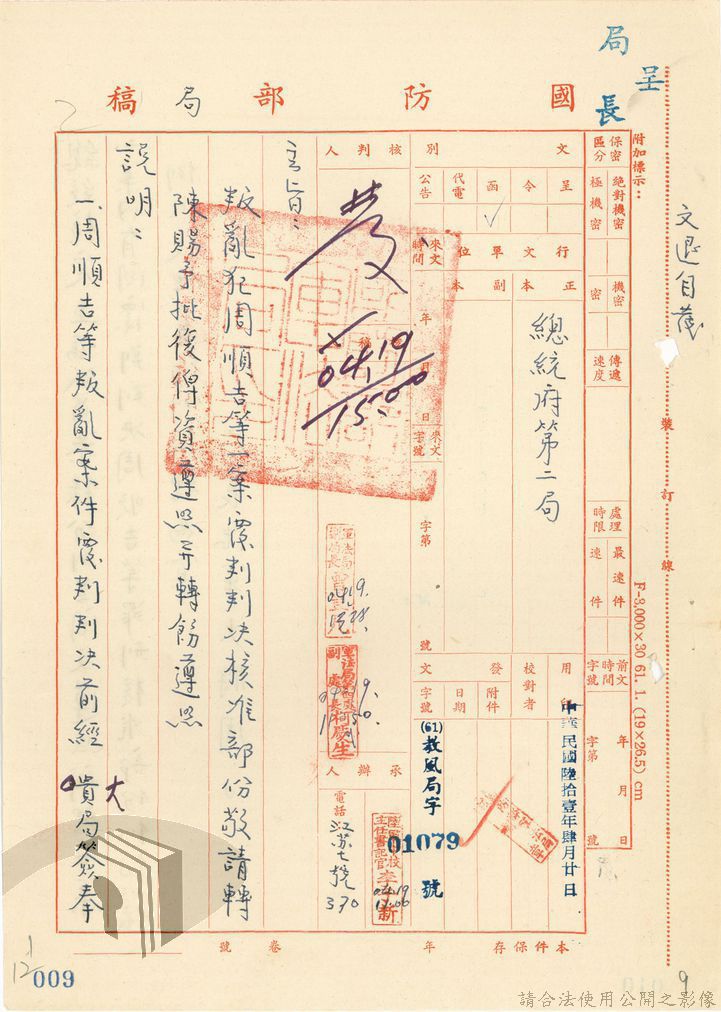 局長
呈
國防部 局稿
附加標示：
保密區分
絕對機密
極機密
機密
密
傳遞速度
處理時限
最速件
速件
前文時間字號
年 月 日
字第 號
裝訂線
文退自存
F-3,000×30 61. 1. (19×26.5) cm
文別
呈
令
函
代電
公告
行文單位
正本
副本
總統府第二局
來文時間
年 月 日
來文字號
字第 號
用印
校對者
發文
附件
日期
字號
中華民國陸拾壹年肆月廿日
(61)教風局字
01079
號
核判人
04.19
15.00
承辦人
電話
江蘇七號
390
主旨：
叛亂犯周順吉等一案覆判判決核准部份敬請轉
陳賜予批復俾資遵照并轉飭遵照
說明：
一、周順吉等叛亂案件覆判判決前經 大
貴局簽奉
本件保存 年
卷號
1/12
009
9
請合法使用公開之影像